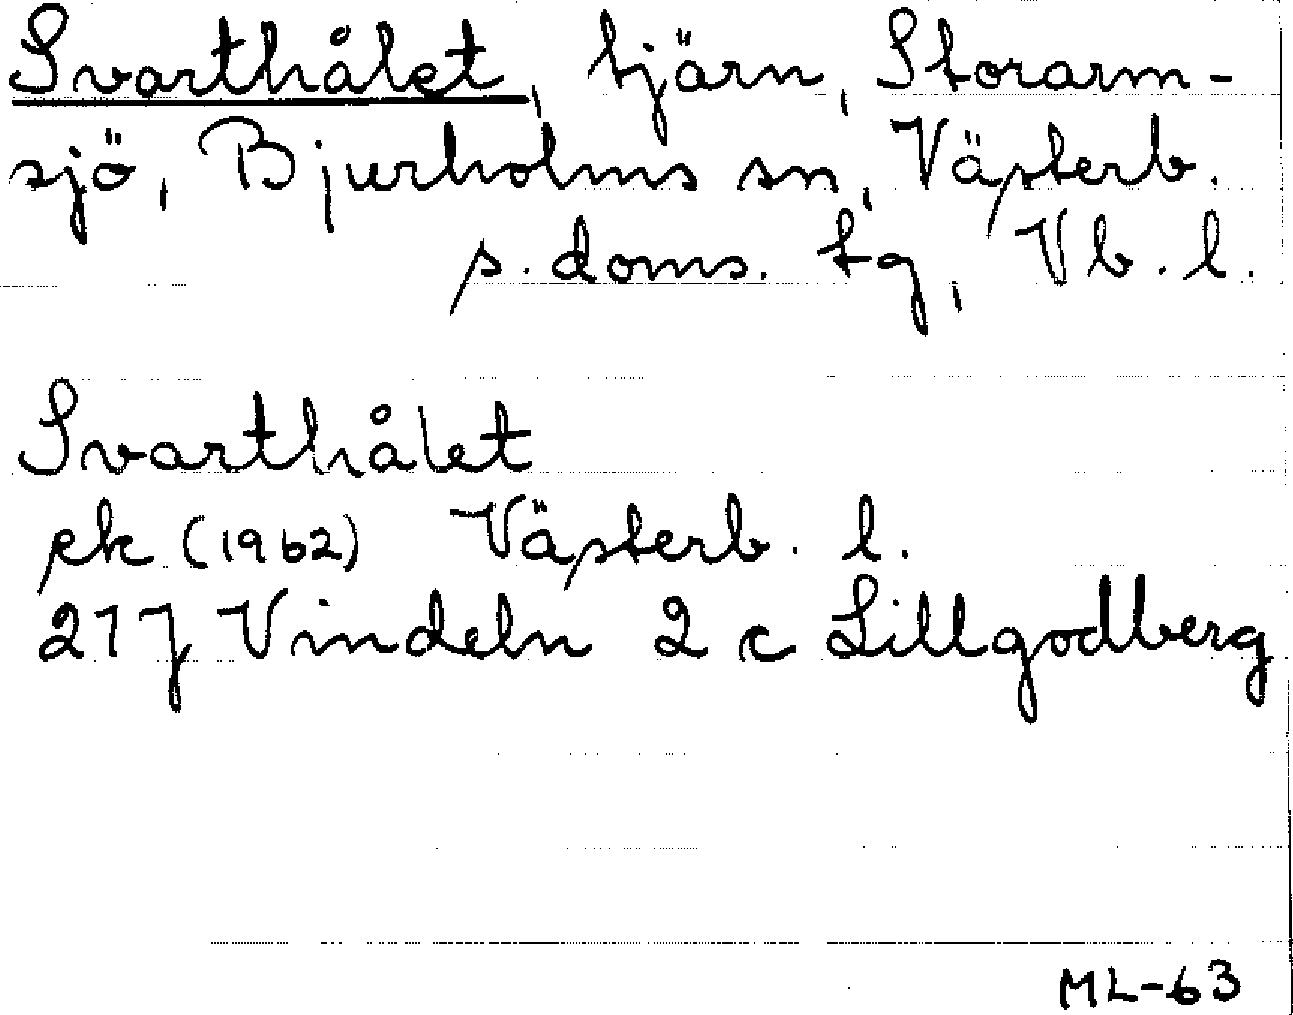 Svarthålet, tjärn, Storarm-
sjö, Bjurholms sn, Västerb.
s. doms. tg, Vb. l.
Svarthålet
rk (1962) Västerb. l.
21J Vindeln 2 c Lillgodberg
ML-63